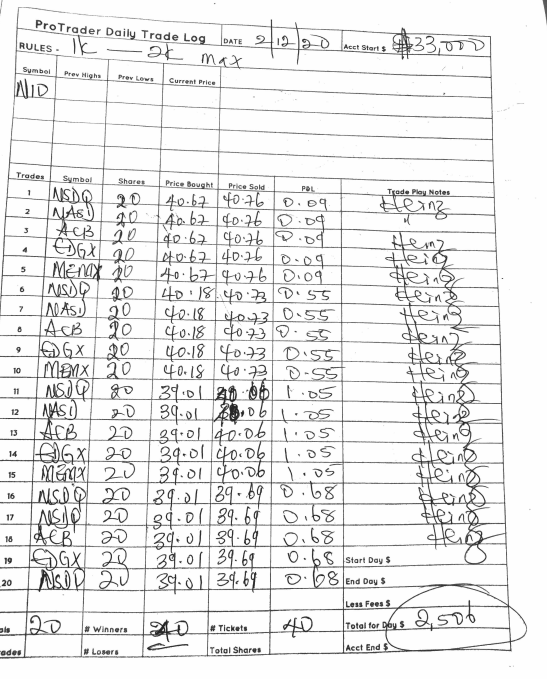 ProTrader Daily Trade Log DATE 2 | 12 | 20 Acct Start $ $33,000
RULES - 1K — 2K max
Symbol Prev Highs Prev Lows Current Price
NID
Trades Symbol Shares Price Bought Price Sold P&L Trade Play Notes
1 NSDQ 20 40.67 40.76 0.09 Heinz
2 NASD 20 40.67 40.76 0.09 "
3 ACB 20 40.67 40.76 0.09 Heinz
4 EDGX 20 40.67 40.76 0.09 Heinz
5 MEMX 20 40.67 40.76 0.09 Heinz
6 NSDQ 20 40.18 40.73 0.55 Heinz
7 NASD 20 40.18 40.73 0.55 Heinz
8 ACB 20 40.18 40.73 0.55 Heinz
9 EDGX 20 40.18 40.73 0.55 Heinz
10 MEMX 20 40.18 40.73 0.55 Heinz
11 NSDQ 20 39.01 1.05 Heinz
12 NASD 20 39.01 1.05 Heinz
13 ACB 20 39.01 40.06 1.05 Heinz
14 EDGX 20 39.01 40.06 1.05 Heinz
15 MEMX 20 39.01 40.06 1.05 Heinz
16 NSDQ 20 39.01 39.69 0.68 Heinz
17 20 39.01 39.69 0.68 Heinz
18 ACB 20 39.01 39.69 0.68 Heinz
19 EDGX 20 39.01 39.69 0.68 Start Day $
20 20 39.01 39.69 0.68 End Day $
Less Fees $
als 20 # Winners # Tickets 40 Total for Day $ 2,506
ades # Losers Total Shares Acct End $